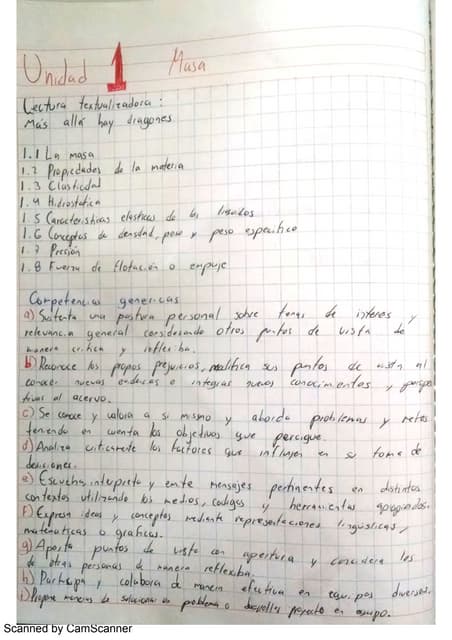 Unidad 1 Masa
Lectura textualizadora:
Más allá hay dragones
1.1 La masa
1.2 Propiedades de la materia
1.3 Elasticidad
1.4 Hidrostatica
1.5 Caracteristicas elasticas de los
1.6 Conceptos de densidad, peso y peso especifico
1.7 Presión
1.8 Fuerza de flotación o empuje
Competencias genericas
a) Sustenta una postura personal sobre temas de interes y
relevancia general considerando otros puntos de vista de
manera critica y reflexiba.
b) Reconoce los propos prejuicios, modifica sus puntos de vista al
conocer nuevas evidecias e integras nuevos conocimentos y perspe
tivas al acervo.
c) Se conoce y valora a si mismo y aborda problemas y retos
teniendo en cuenta los objetivos que percigue.
d) Analiza criticamente los factores que influyen en su toma de
deciciones.
e) Escucha, interpreta y emite mensajes pertinentes en distintos
contextos utilizando los medios, codigos y herramientas
f) Expresa ideas y conceptos mediante representaciones linguisticas,
matematicas o graficas.
g) Aporta puntos de vista con apertura y concidera los
de otras personas de manera reflexiba.
h) Participa y colabora de manera efectiva en equipos diversos.
i) Propone maneras de solucionar un problema o desarrolla proyecto en equipo.
Scanned by CamScanner